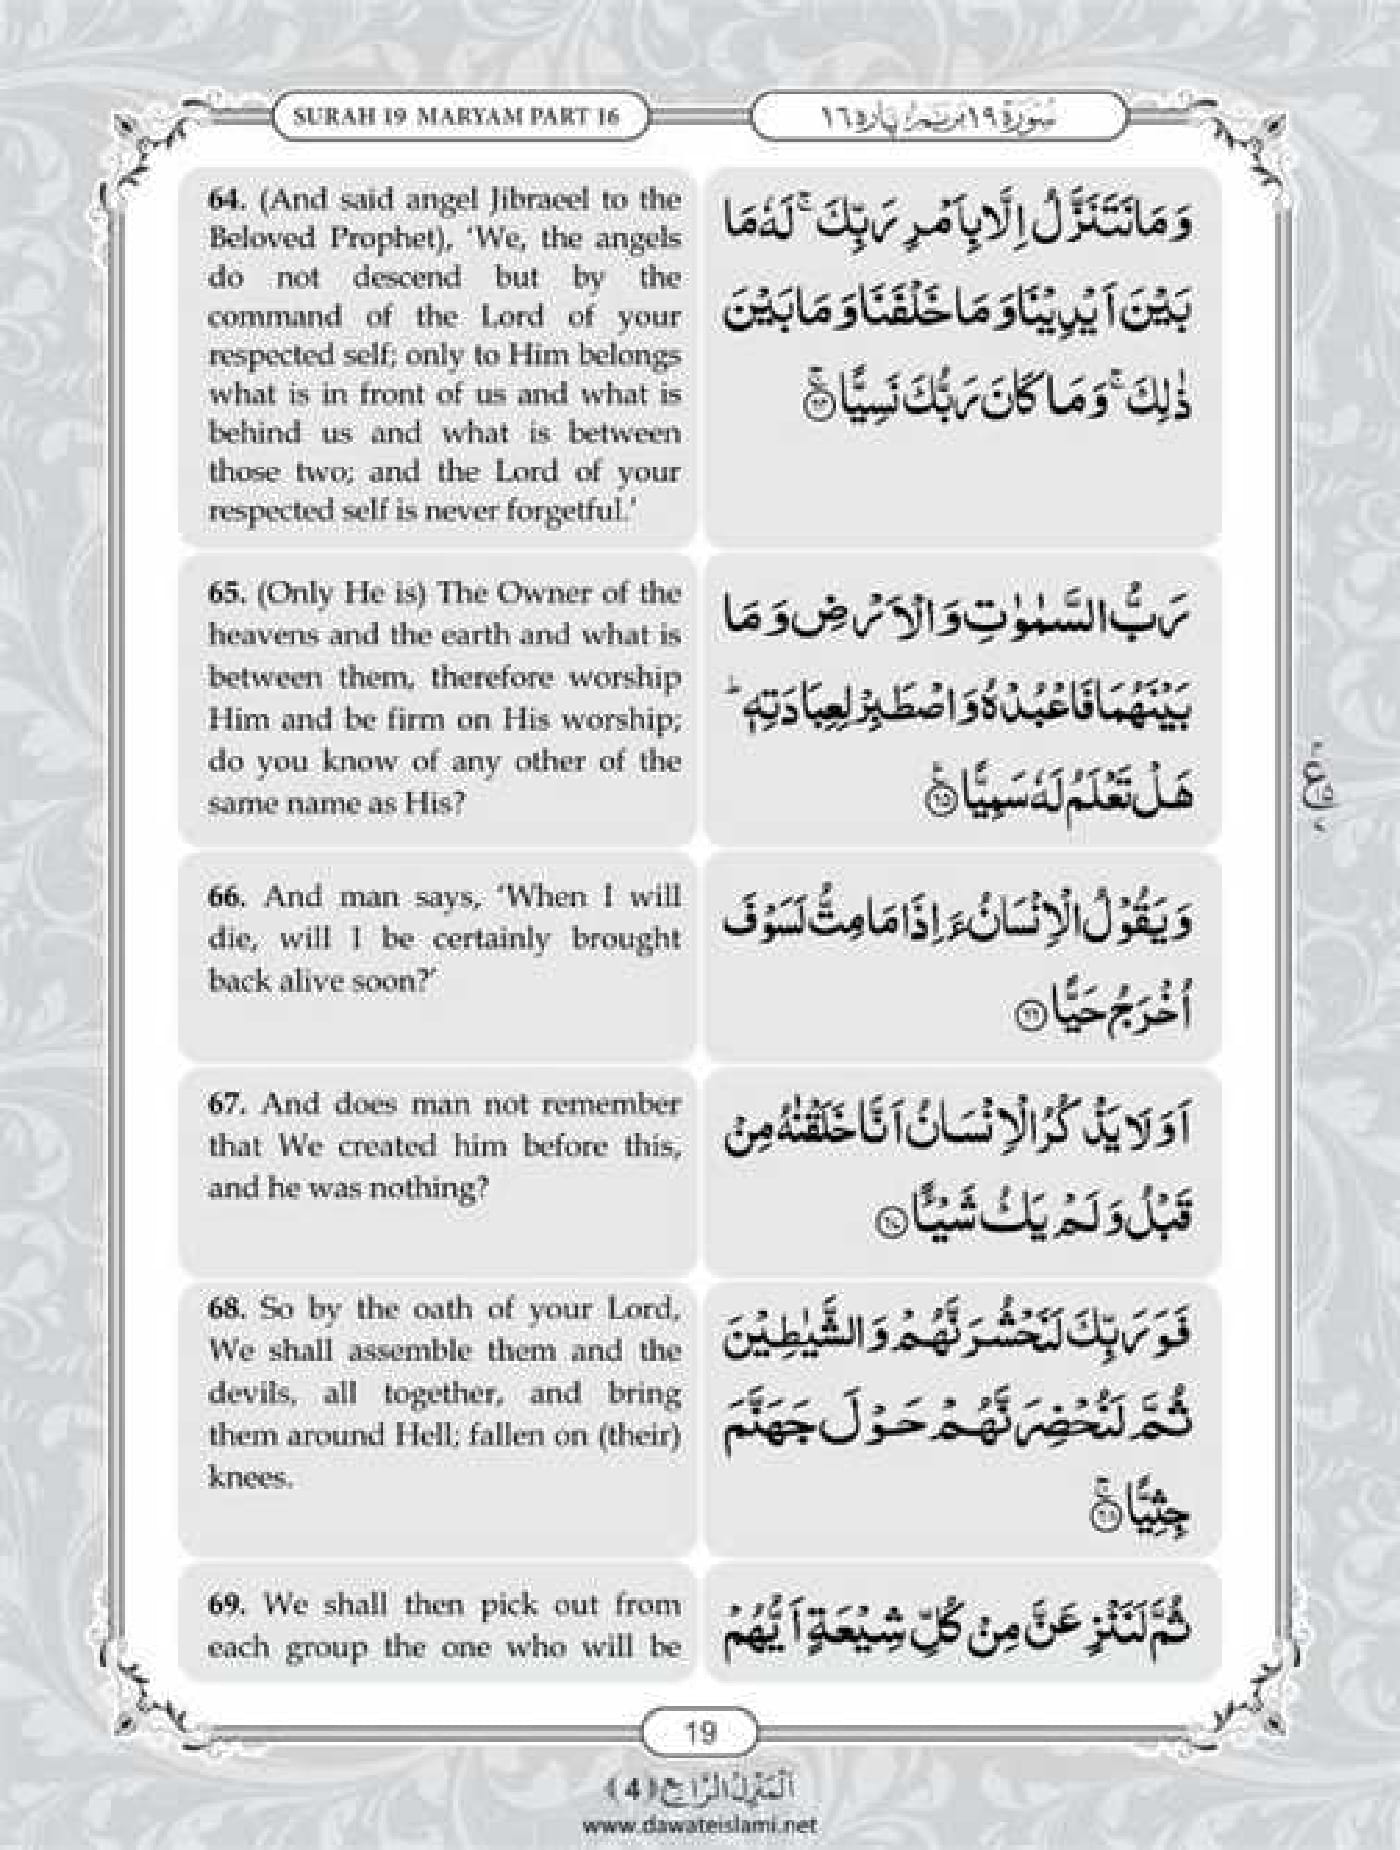 SURAH 19 MARYAM PART 16
سُورَة ١٩ مريم پاره ١٦
64. (And said angel Jibraeel to the
Beloved Prophet), ‘We, the angels
do not descend but by the
command of the Lord of your
respected self; only to Him belongs
what is in front of us and what is
behind us and what is between
those two; and the Lord of your
respected self is never forgetful.’
وَمَا نَتَنَزَّلُ اِلَّا بِاَمْرِ رَبِّكَ ۚ لَهٗ مَا
بَيْنَ اَيْدِيْنَا وَمَا خَلْفَنَا وَمَا بَيْنَ
ذٰلِكَ ۚ وَمَا كَانَ رَبُّكَ نَسِيًّا ۚ ﴿٦٤﴾
65. (Only He is) The Owner of the
heavens and the earth and what is
between them, therefore worship
Him and be firm on His worship;
do you know of any other of the
same name as His?
رَبُّ السَّمٰوٰتِ وَالْاَرْضِ وَمَا
بَيْنَهُمَا فَاعْبُدْهُ وَاصْطَبِرْ لِعِبَادَتِهٖ ؕ
هَلْ تَعْلَمُ لَهٗ سَمِيًّا ﴿٦٥﴾
ع
١٥
66. And man says, ‘When I will
die, will I be certainly brought
back alive soon?’
وَيَقُوْلُ الْاِنْسَانُ ءَاِذَا مَا مِتُّ لَسَوْفَ
اُخْرَجُ حَيًّا ﴿٦٦﴾
67. And does man not remember
that We created him before this,
and he was nothing?
اَوَلَا يَذْكُرُ الْاِنْسَانُ اَنَّا خَلَقْنٰهُ مِنْ
قَبْلُ وَلَمْ يَكُ شَيْـًٔا ﴿٦٧﴾
68. So by the oath of your Lord,
We shall assemble them and the
devils, all together, and bring
them around Hell; fallen on (their)
knees.
فَوَرَبِّكَ لَنَحْشُرَنَّهُمْ وَالشَّيٰطِيْنَ
ثُمَّ لَنُحْضِرَنَّهُمْ حَوْلَ جَهَنَّمَ
جِثِيًّا ۚ ﴿٦٨﴾
69. We shall then pick out from
each group the one who will be
ثُمَّ لَنَنْزِعَنَّ مِنْ كُلِّ شِيْعَةٍ اَيُّهُمْ
19
اَلْمَنْزِلُ الرَّابِع (4)
www.dawateislami.net